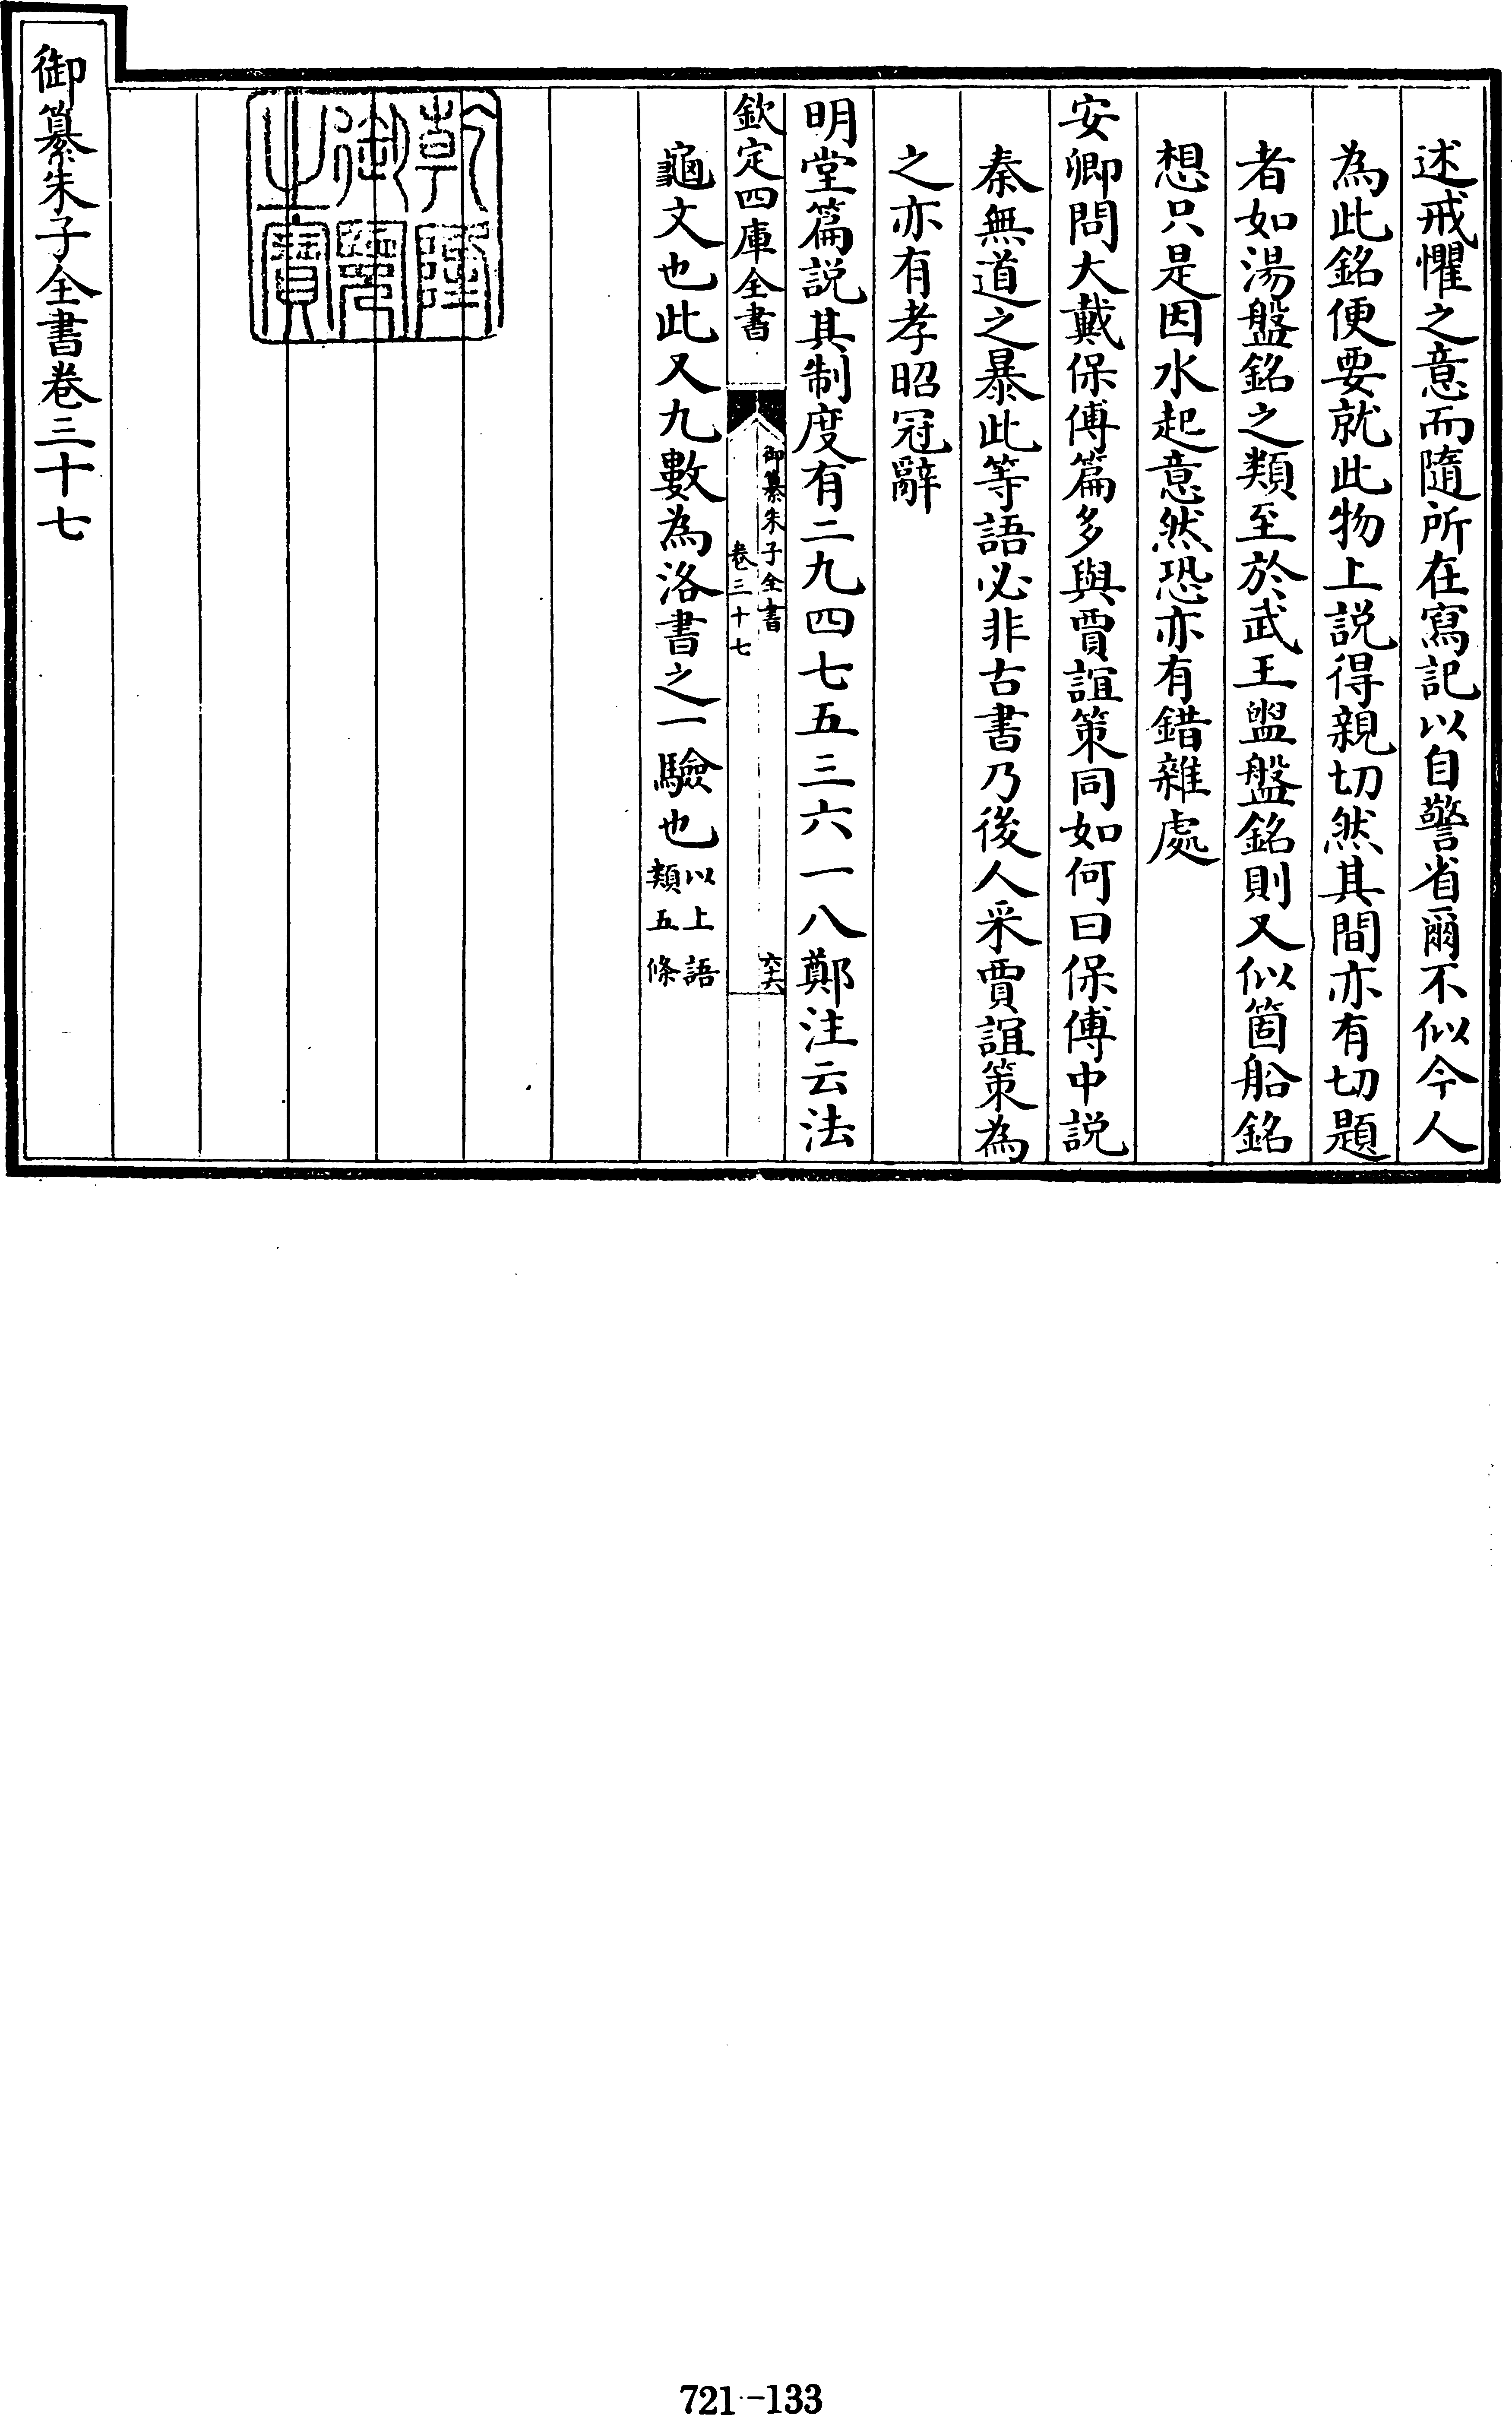 述戒懼之意而隨所在寫記以自警省爾不似今人
為此銘便要就此物上説得親切然其間亦有切題
者如湯盤銘之類至於武王盥盤銘則又似箇船銘
想只是因水起意然恐亦有錯雜處
安卿問大戴保傅篇多與賈誼策同如何曰保傅中説
秦無道之暴此等語必非古書乃後人采賈誼策為
之亦有孝昭冠辭
明堂篇説其制度有二九四七五三六一八鄭注云法
欽定四庫全書
御纂朱子全書
卷三十七
六十六
龜文也此又九數為洛書之一驗也以上語
類五條
乾隆
御覽
之寶
御纂朱子全書卷三十七
721-133